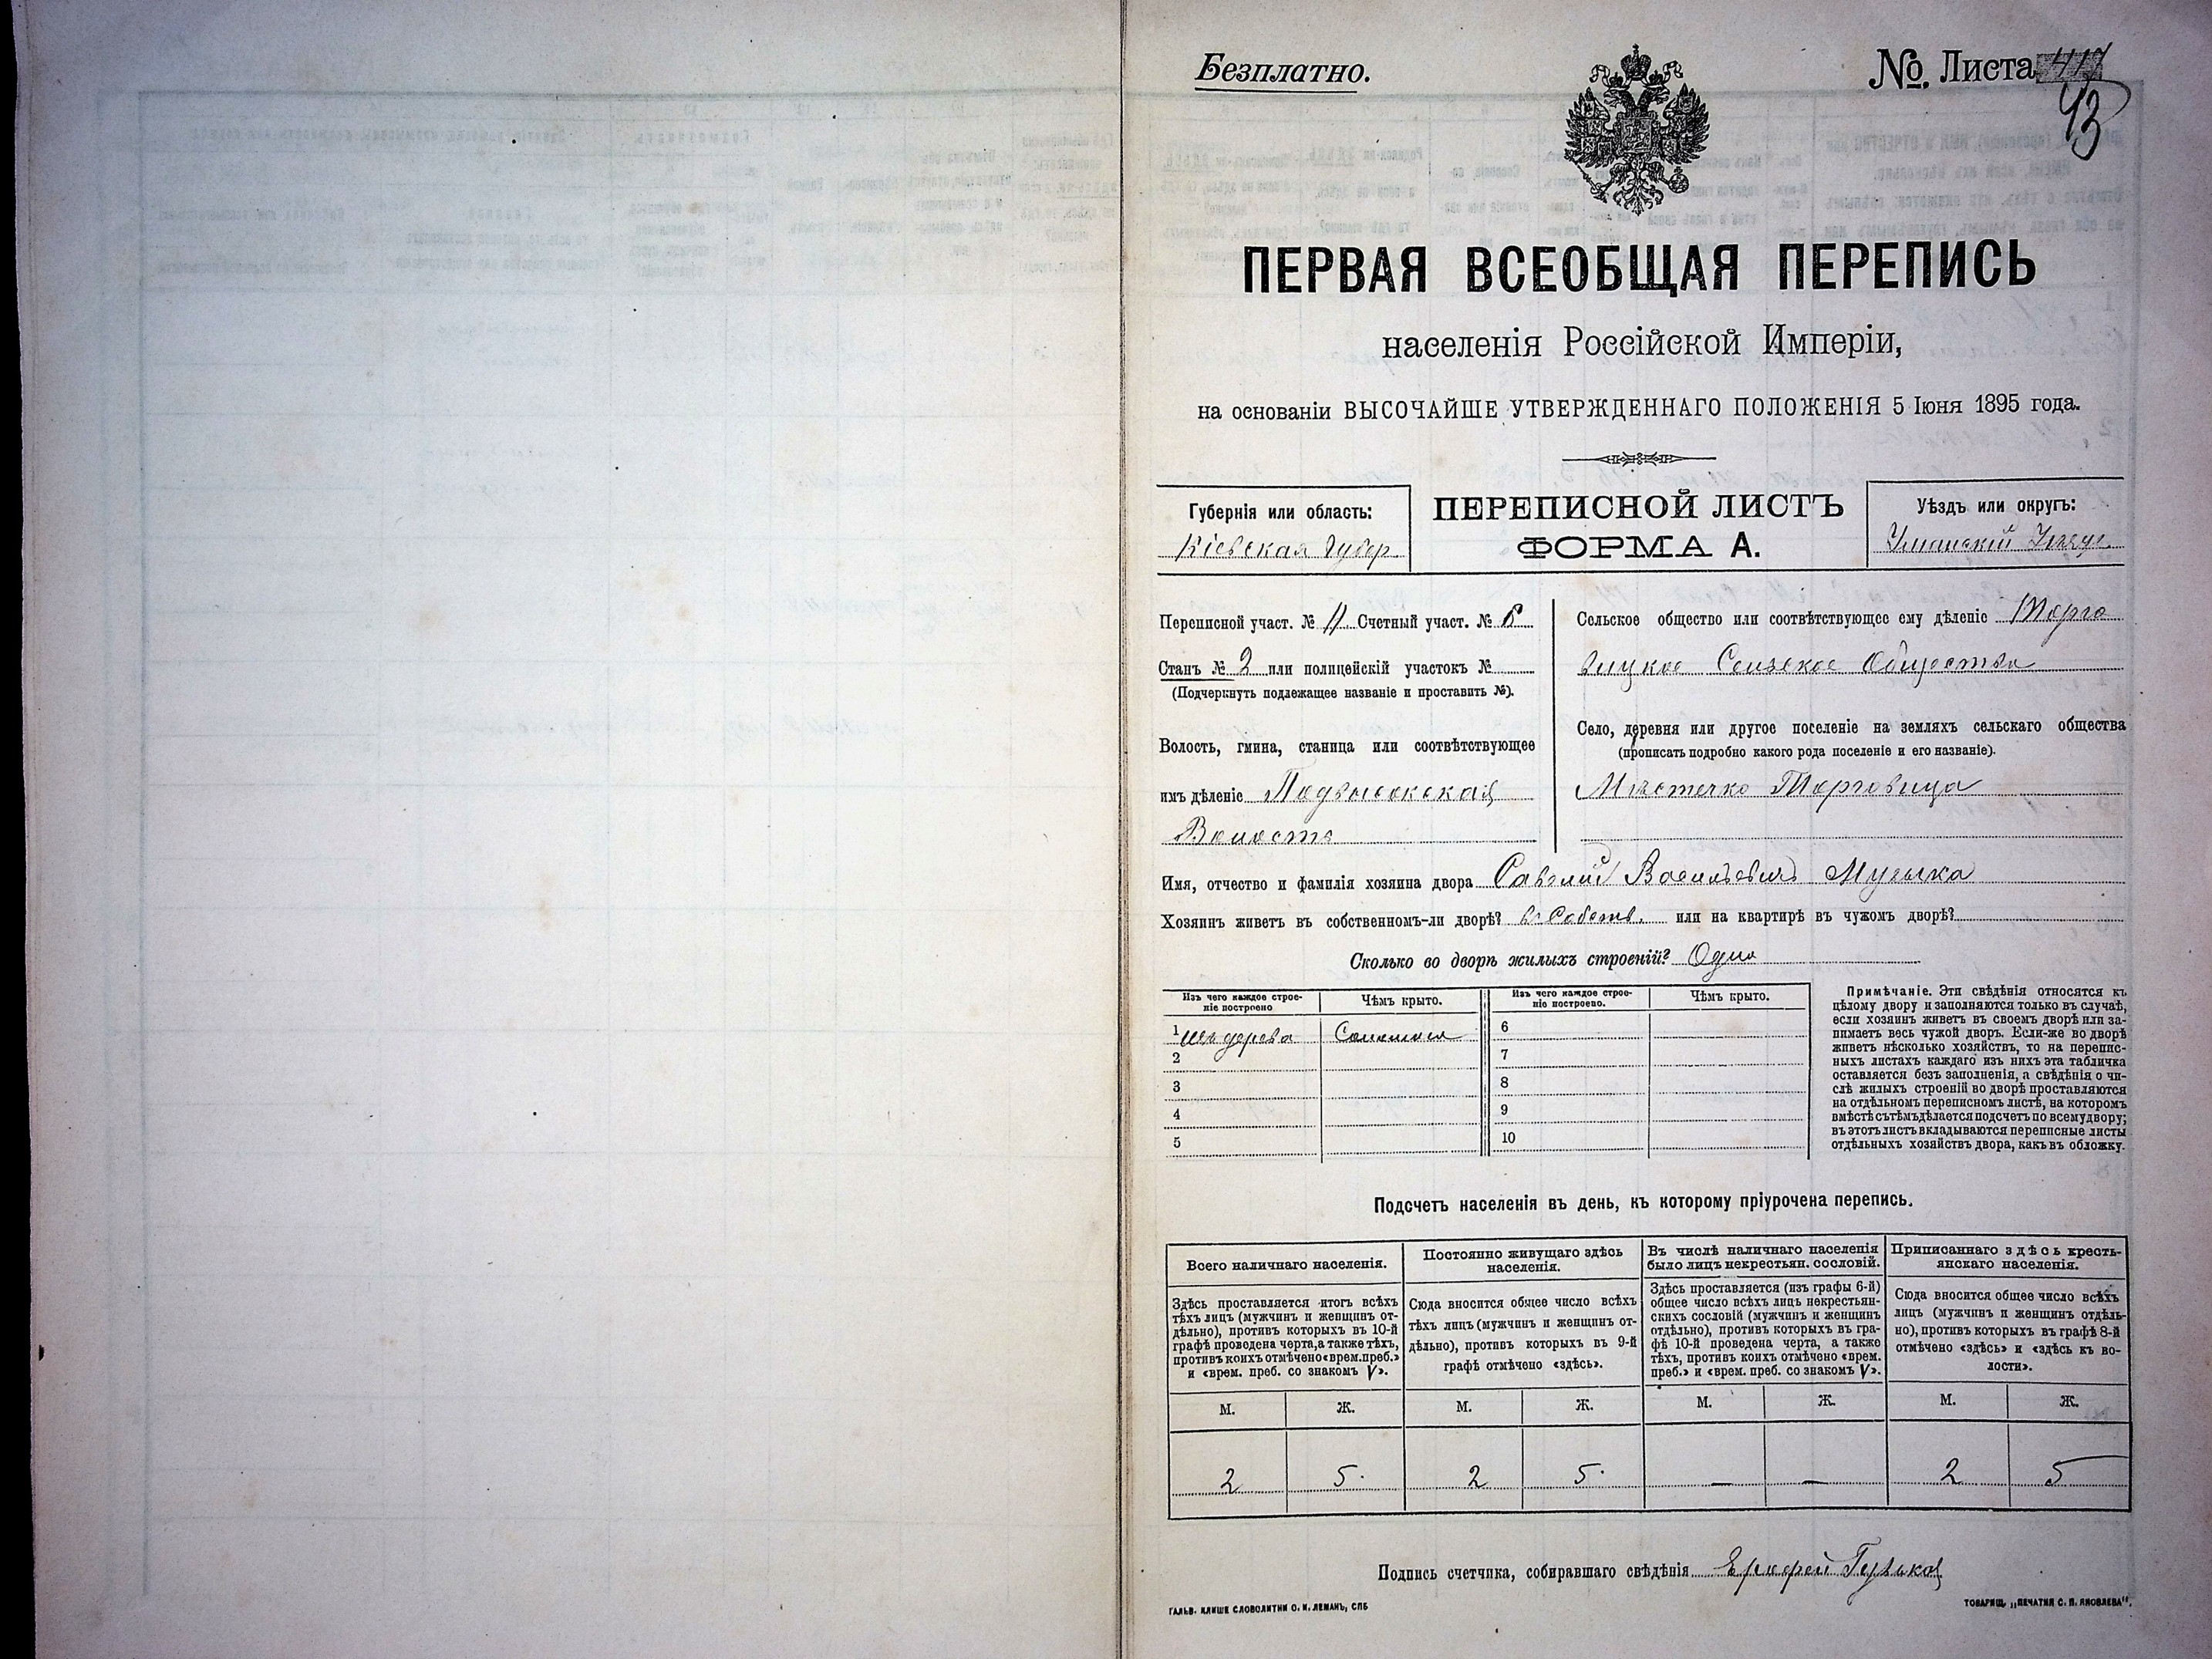 Безплатно.
№ Листа 43
ПЕРВАЯ ВСЕОБЩАЯ ПЕРЕПИСЬ
населенія Россійской Имперіи,
на основаніи ВЫСОЧАЙШЕ УТВЕРЖДЕННАГО ПОЛОЖЕНІЯ 5 Іюня 1895 года.
Губернія или область:
Кіевская Губер.
ПЕРЕПИСНОЙ ЛИСТЪ
ФОРМА А.
Уѣздъ или округъ:
Уманскій Уѣзд.
Переписной участ. № 11 Счетный участ. №
Станъ № 2 или полицейскій участокъ №
(Подчеркнуть подлежащее названіе и проставить №).
Волость, гмина, станица или соотвѣтствующее
имъ дѣленіе Подвысокская
Волость
Сельское общество или соотвѣтствующее ему дѣленіе Торго
вицкое Сельское Общество
Село, деревня или другое поселеніе на земляхъ сельскаго общества
(прописать подробно какого рода поселеніе и его названіе).
Мѣстечко Торговица
Имя, отчество и фамилія хозяина двора Савелій Васильевичъ Музыка
Хозяинъ живетъ въ собственномъ-ли дворѣ? въ Собств. или на квартирѣ въ чужомъ дворѣ?
Сколько во дворѣ жилыхъ строеній? Одно
Изъ чего каждое строе-
ніе построено
Чѣмъ крыто.
Изъ чего каждое строе-
ніе построено.
Чѣмъ крыто.
1 Изъ дерева Соломой
2
3
4
5
6
7
8
9
10
Примѣчаніе. Эти свѣдѣнія относятся къ
цѣлому двору и заполняются только въ случаѣ,
если хозяинъ живетъ въ своемъ дворѣ или за-
нимаетъ весь чужой дворъ. Если-же во дворѣ
живетъ нѣсколько хозяйствъ, то на перепис-
ныхъ листахъ каждаго изъ нихъ эта табличка
оставляется безъ заполненія, а свѣдѣнія о чи-
слѣ жилыхъ строеній во дворѣ проставляются
на отдѣльномъ переписномъ листѣ, на которомъ
вмѣстѣ съ тѣмъ дѣлается подсчетъ по всему двору;
въ этотъ листъ вкладываются переписные листы
отдѣльныхъ хозяйствъ двора, какъ въ обложку.
Подсчетъ населенія въ день, къ которому пріурочена перепись.
Всего наличнаго населенія.
Здѣсь проставляется итогъ всѣхъ
тѣхъ лицъ (мужчинъ и женщинъ от-
дѣльно), противъ которыхъ въ 10-й
графѣ проведена черта, а также тѣхъ,
противъ коихъ отмѣчено «врем. преб.»
и «врем. преб. со знакомъ V».
Постоянно живущаго здѣсь
населенія.
Сюда вносится общее число всѣхъ
тѣхъ лицъ (мужчинъ и женщинъ от-
дѣльно), противъ которыхъ въ 9-й
графѣ отмѣчено «здѣсь».
Въ числѣ наличнаго населенія
было лицъ некрестьян. сословій.
Здѣсь проставляется (изъ графы 6-й)
общее число всѣхъ лицъ некрестьян-
скихъ сословій (мужчинъ и женщинъ
отдѣльно), противъ которыхъ въ гра-
фѣ 10-й проведена черта, а также
тѣхъ, противъ коихъ отмѣчено «врем.
преб.» и «врем. преб. со знакомъ V».
Приписаннаго здѣсь кресть-
янскаго населенія.
Сюда вносится общее число всѣхъ
лицъ (мужчинъ и женщинъ отдѣль-
но), противъ которыхъ въ графѣ 8-й
отмѣчено «здѣсь» и «здѣсь къ во-
лости».
М. Ж. М. Ж. М. Ж. М. Ж.
2 5. 2 5. — — 2 5
Подпись счетчика, собиравшаго свѣдѣнія
ГАЛЬВ. КЛИШЕ СЛОВОЛИТНИ О. И. ЛЕМАНЪ, СПБ
ТОВАРИЩ. „ПЕЧАТНЯ С. П. ЯКОВЛЕВА".